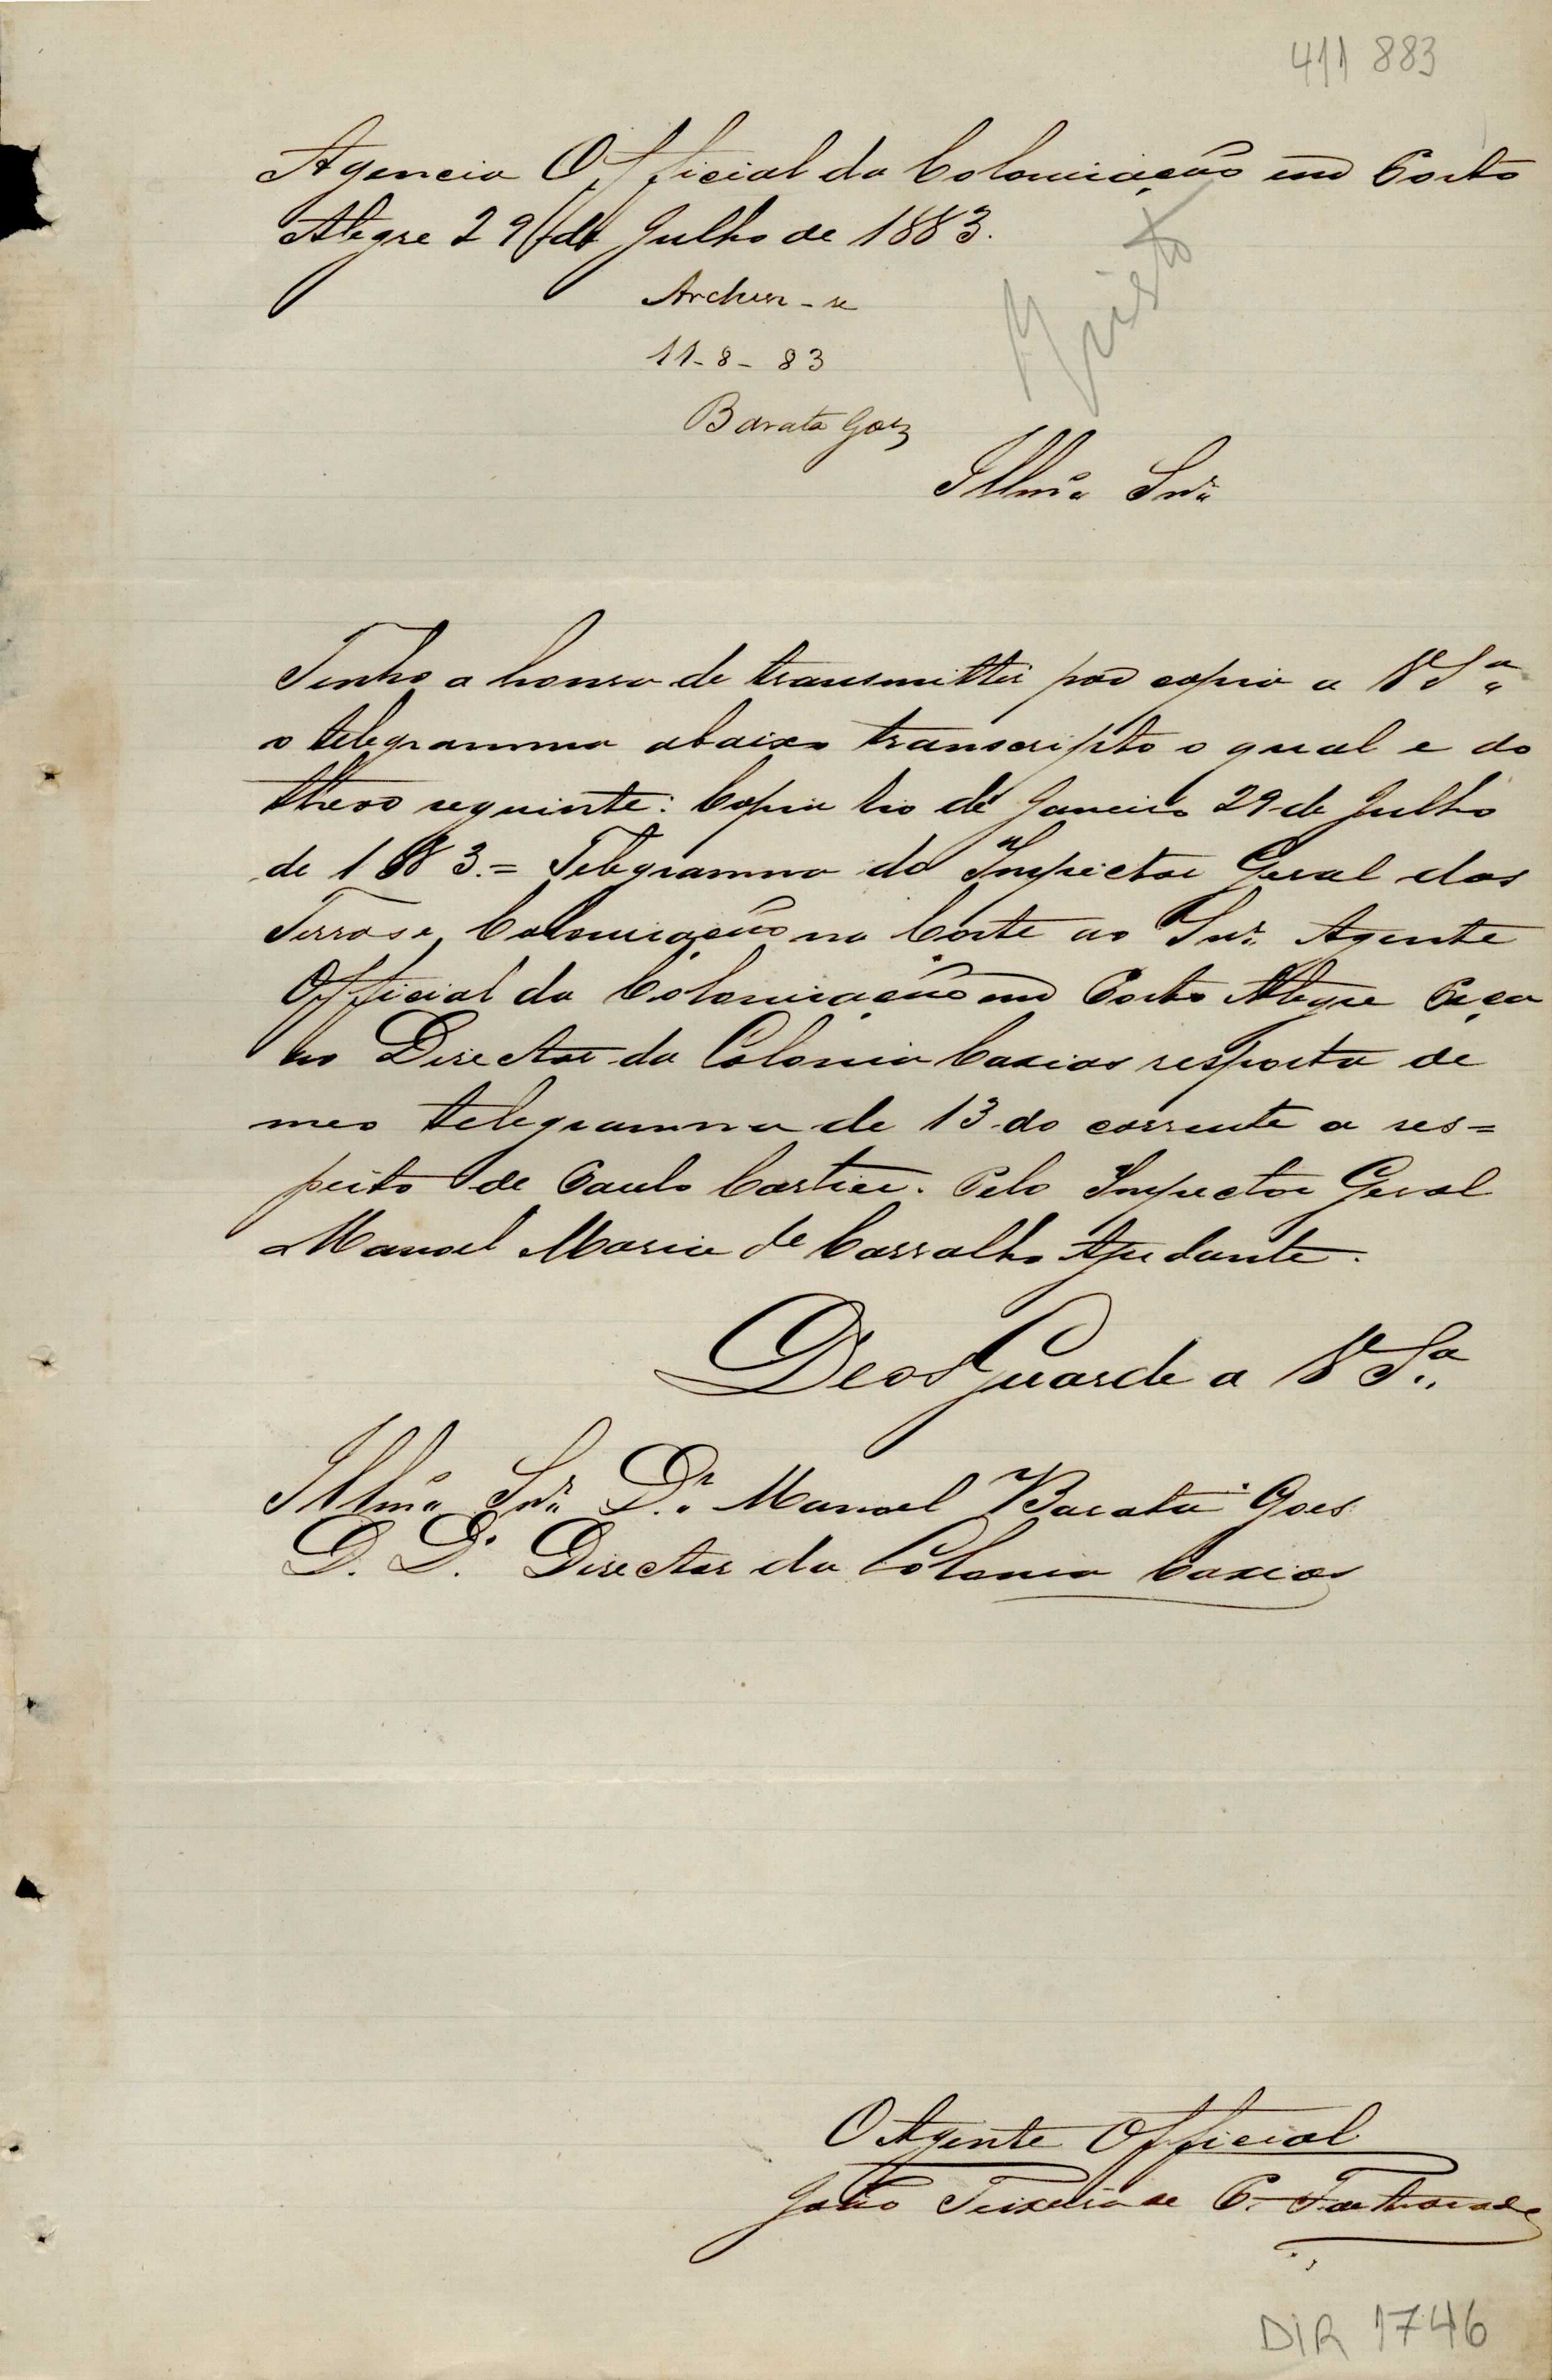 411 883
Agencia Official da Colonisação em Porto
Alegre 29 de Julho de 1883.
Archive-se
11-8-83
Barata Goes
Visto
Illmo Snr
Tenho a honra de transmittir por copia a VSa
o telegramma abaixo transcripto o qual e do
theor seguinte: Copia Rio de Janeiro 29 de Julho
de 1883.= Telegramma do Inspector Geral das
Terras e Colonisação na Corte ao Snr. Agente
Official da Colonisação em Porto Alegre Peça
ao Director da Colonia Caxias resposta de
meo telegramma de 13 do corrente a res=
peito de Paulo Cartier. Pelo Inspector Geral
Manoel Maria de Carvalho Ajudante.
Deos Guarde a VSa
Illmo Snr Dr. Manoel Barata Goes
D. D. Director da Colonia Caxias
O Agente Official
João Teixeira de C.
DIR 1746